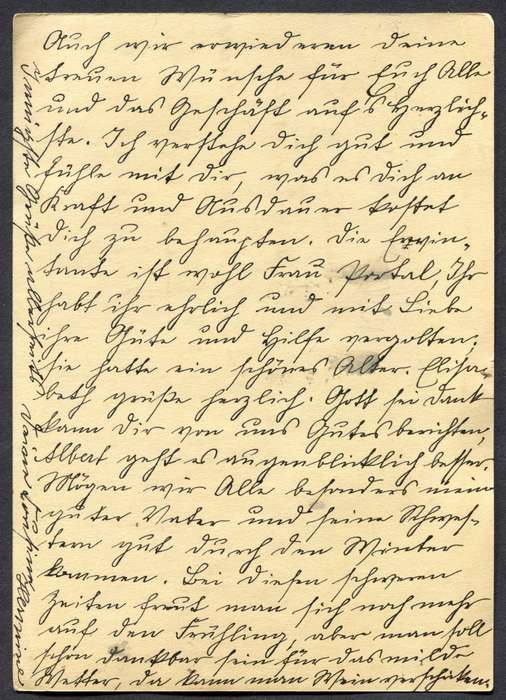 Auch wir erwiederen deine
treuen Wünsche für Euch Alle
und das Geschäft auf's Herzlich-
ste. Ich verstehe dich gut und
fühle mit dir, was es dich an
Kraft und Ausdauer kostet
dich zu behaupten. Die Erwin-
tante ist wohl Frau Portal, Ihr
habt ihr ehrlich und mit Liebe
ihre Güte und Hilfe vergolten;
sie hatte ein schönes Alter. Elisa-
beth grüße herzlich. Gott sei Dank
kann Dir von uns Gutes berichten,
Albert geht es augenblicklich besser.
Mögen wir Alle besonders mein
guter Vater und seine Schwes-
tern gut durch den Winter
kommen. Bei diesen schweren
Zeiten freut man sich noch mehr
auf den Frühling, aber man soll
schon dankbar sein für das milde
Wetter, da kann man Wein verschicken.